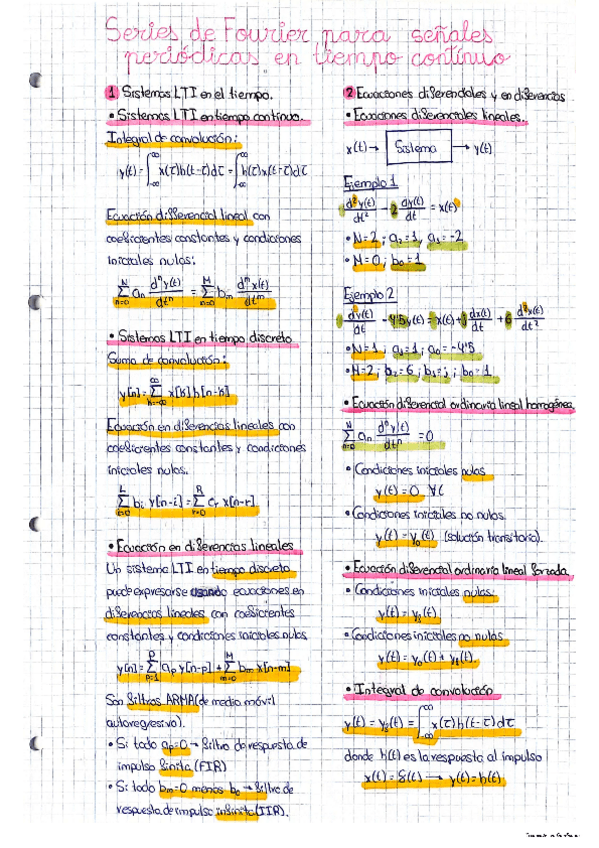 Series de Fourier para señales
periódicas en tiempo continuo
1 Sistemas LTI en el tiempo.
• Sistemas LTI en tiempo continuo.
Integral de convolución:
y(t) = ∫_{-∞}^{∞} x(τ)h(t-τ)dτ = ∫_{-∞}^{∞} h(τ)x(t-τ)dτ
Ecuación diferencial lineal con
coeficientes constantes y condiciones
iniciales nulas:
∑_{n=0}^{N} a_n d^n y(t)/dt^n = ∑_{m=0}^{M} b_m d^m x(t)/dt^m
• Sistemas LTI en tiempo discreto
Suma de convolución:
y[n] = ∑_{k=-∞}^{∞} x[k] h[n-k]
Ecuación en diferencias lineales con
coeficientes constantes y condiciones
iniciales nulas.
∑_{i=0}^{L} b_i y[n-i] = ∑_{r=0}^{R} c_r x[n-r]
• Ecuación en diferencias lineales
Un sistema LTI en tiempo discreto
puede expresarse usando ecuaciones en
diferencias lineales con coeficientes
constantes y condiciones iniciales nulas
y[n] = ∑_{p=1}^{P} a_p y[n-p] + ∑_{m=0}^{M} b_m x[n-m]
Son filtros ARMA (de media móvil
autoregresivo).
• Si todo a_p=0 → filtro de respuesta de
impulso finita (FIR)
• Si todo b_m=0 menos b_0 → filtro de
respuesta de impulso infinita (IIR).
2 Ecuaciones diferenciales y en diferencias
• Ecuaciones diferenciales lineales.
x(t) → Sistema → y(t)
Ejemplo 1
d²y(t)/dt² - 2 dy(t)/dt = x(t)
• N=2 ; a_2=1, a_1=-2
• M=0 ; b_0=1
Ejemplo 2
dy(t)/dt - 4'5y(t) = x(t) + j dx(t)/dt + 6 d²x(t)/dt²
• N=1 ; a_1=1 ; a_0=-4'5
• M=2 ; b_2=6 ; b_1=j ; b_0=1.
• Ecuación diferencial ordinaria lineal homogénea
∑_{n=0}^{N} a_n d^n y(t)/dt^n = 0
• Condiciones iniciales nulas
y(t) = 0 ∀t
• Condiciones iniciales no nulas.
y(t) = y_0(t) (solución transitoria).
• Ecuación diferencial ordinaria lineal forzada.
• Condiciones iniciales nulas.
y(t) = y_f(t)
• Condiciones iniciales no nulas.
y(t) = y_0(t) + y_f(t)
• Integral de convolución
y(t) = y_f(t) = ∫_{-∞}^{∞} x(τ)h(t-τ)dτ
donde h(t) es la respuesta al impulso
x(t) = δ(t) → y(t) = h(t)